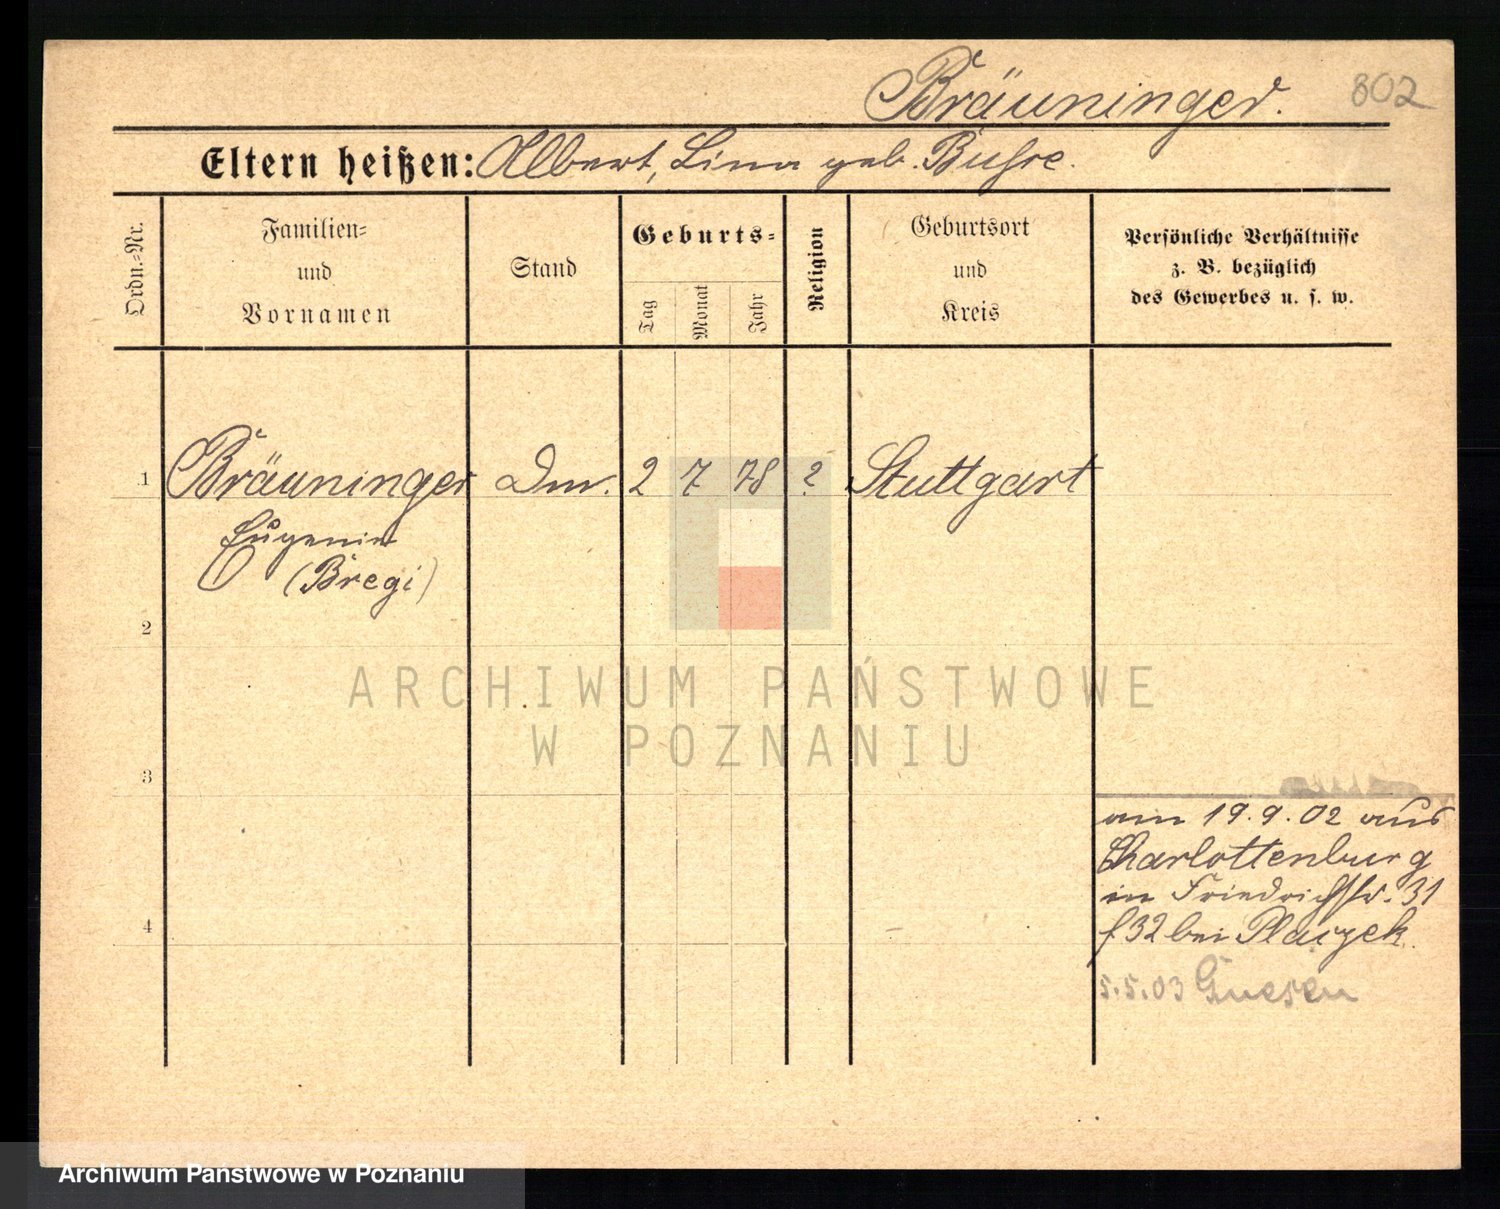 Bräuninger. 802
Eltern heißen: Albert, Lina geb. Buhre.
Ordn.-Nr.
Familien-
und
Vornamen
Stand
Geburts-
Tag
Monat
Jahr
Religion
Geburtsort
und
Kreis
Persönliche Verhältnisse
z. B. bezüglich
des Gewerbes u. s. w.
1 Bräuninger 2 7 78 ? Stuttgart
Eugenie
(Bregi)
2
3
4
am 19.9.02 aus
Charlottenburg
in Friedrichstr. 31
/32 bei
5.5.03 Gnesen
ARCHIWUM PAŃSTWOWE
W POZNANIU
Archiwum Państwowe w Poznaniu